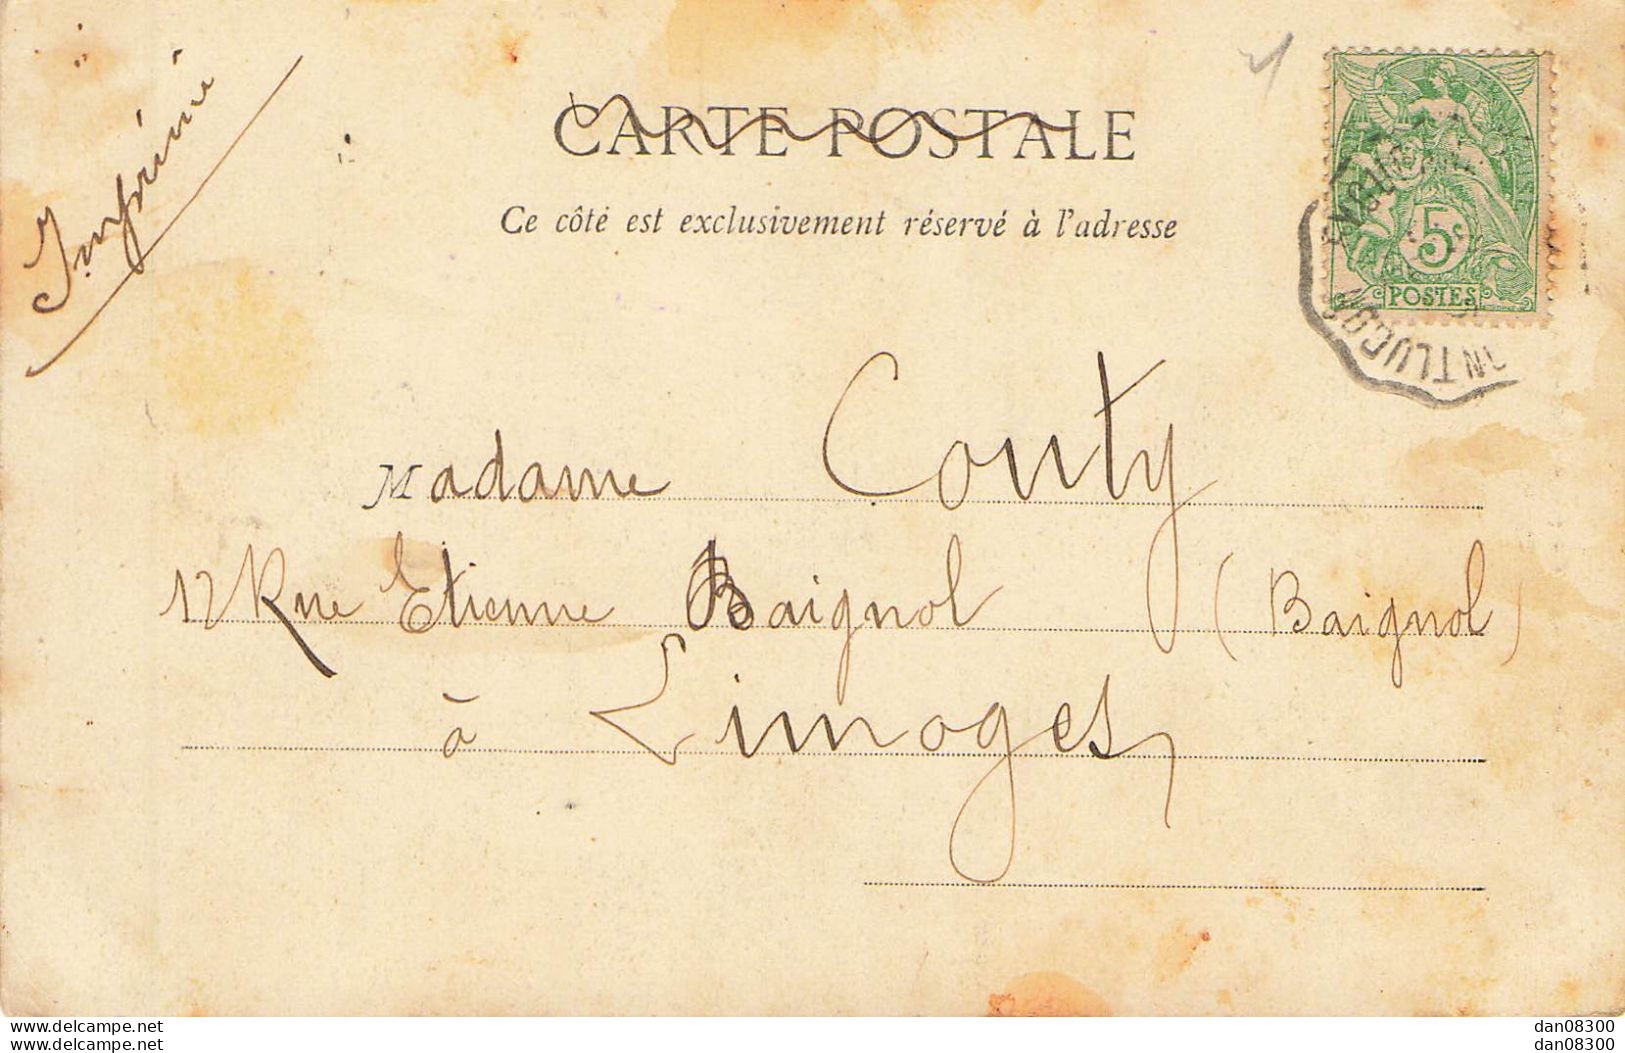 Imprimé
CARTE POSTALE
Ce côté est exclusivement réservé à l'adresse
5
POSTES
Madame Couty
12 Rue Etienne Baignol (Baignol)
à Limoges
www.delcampe.net
www.delcampe.net
dan08300
dan08300